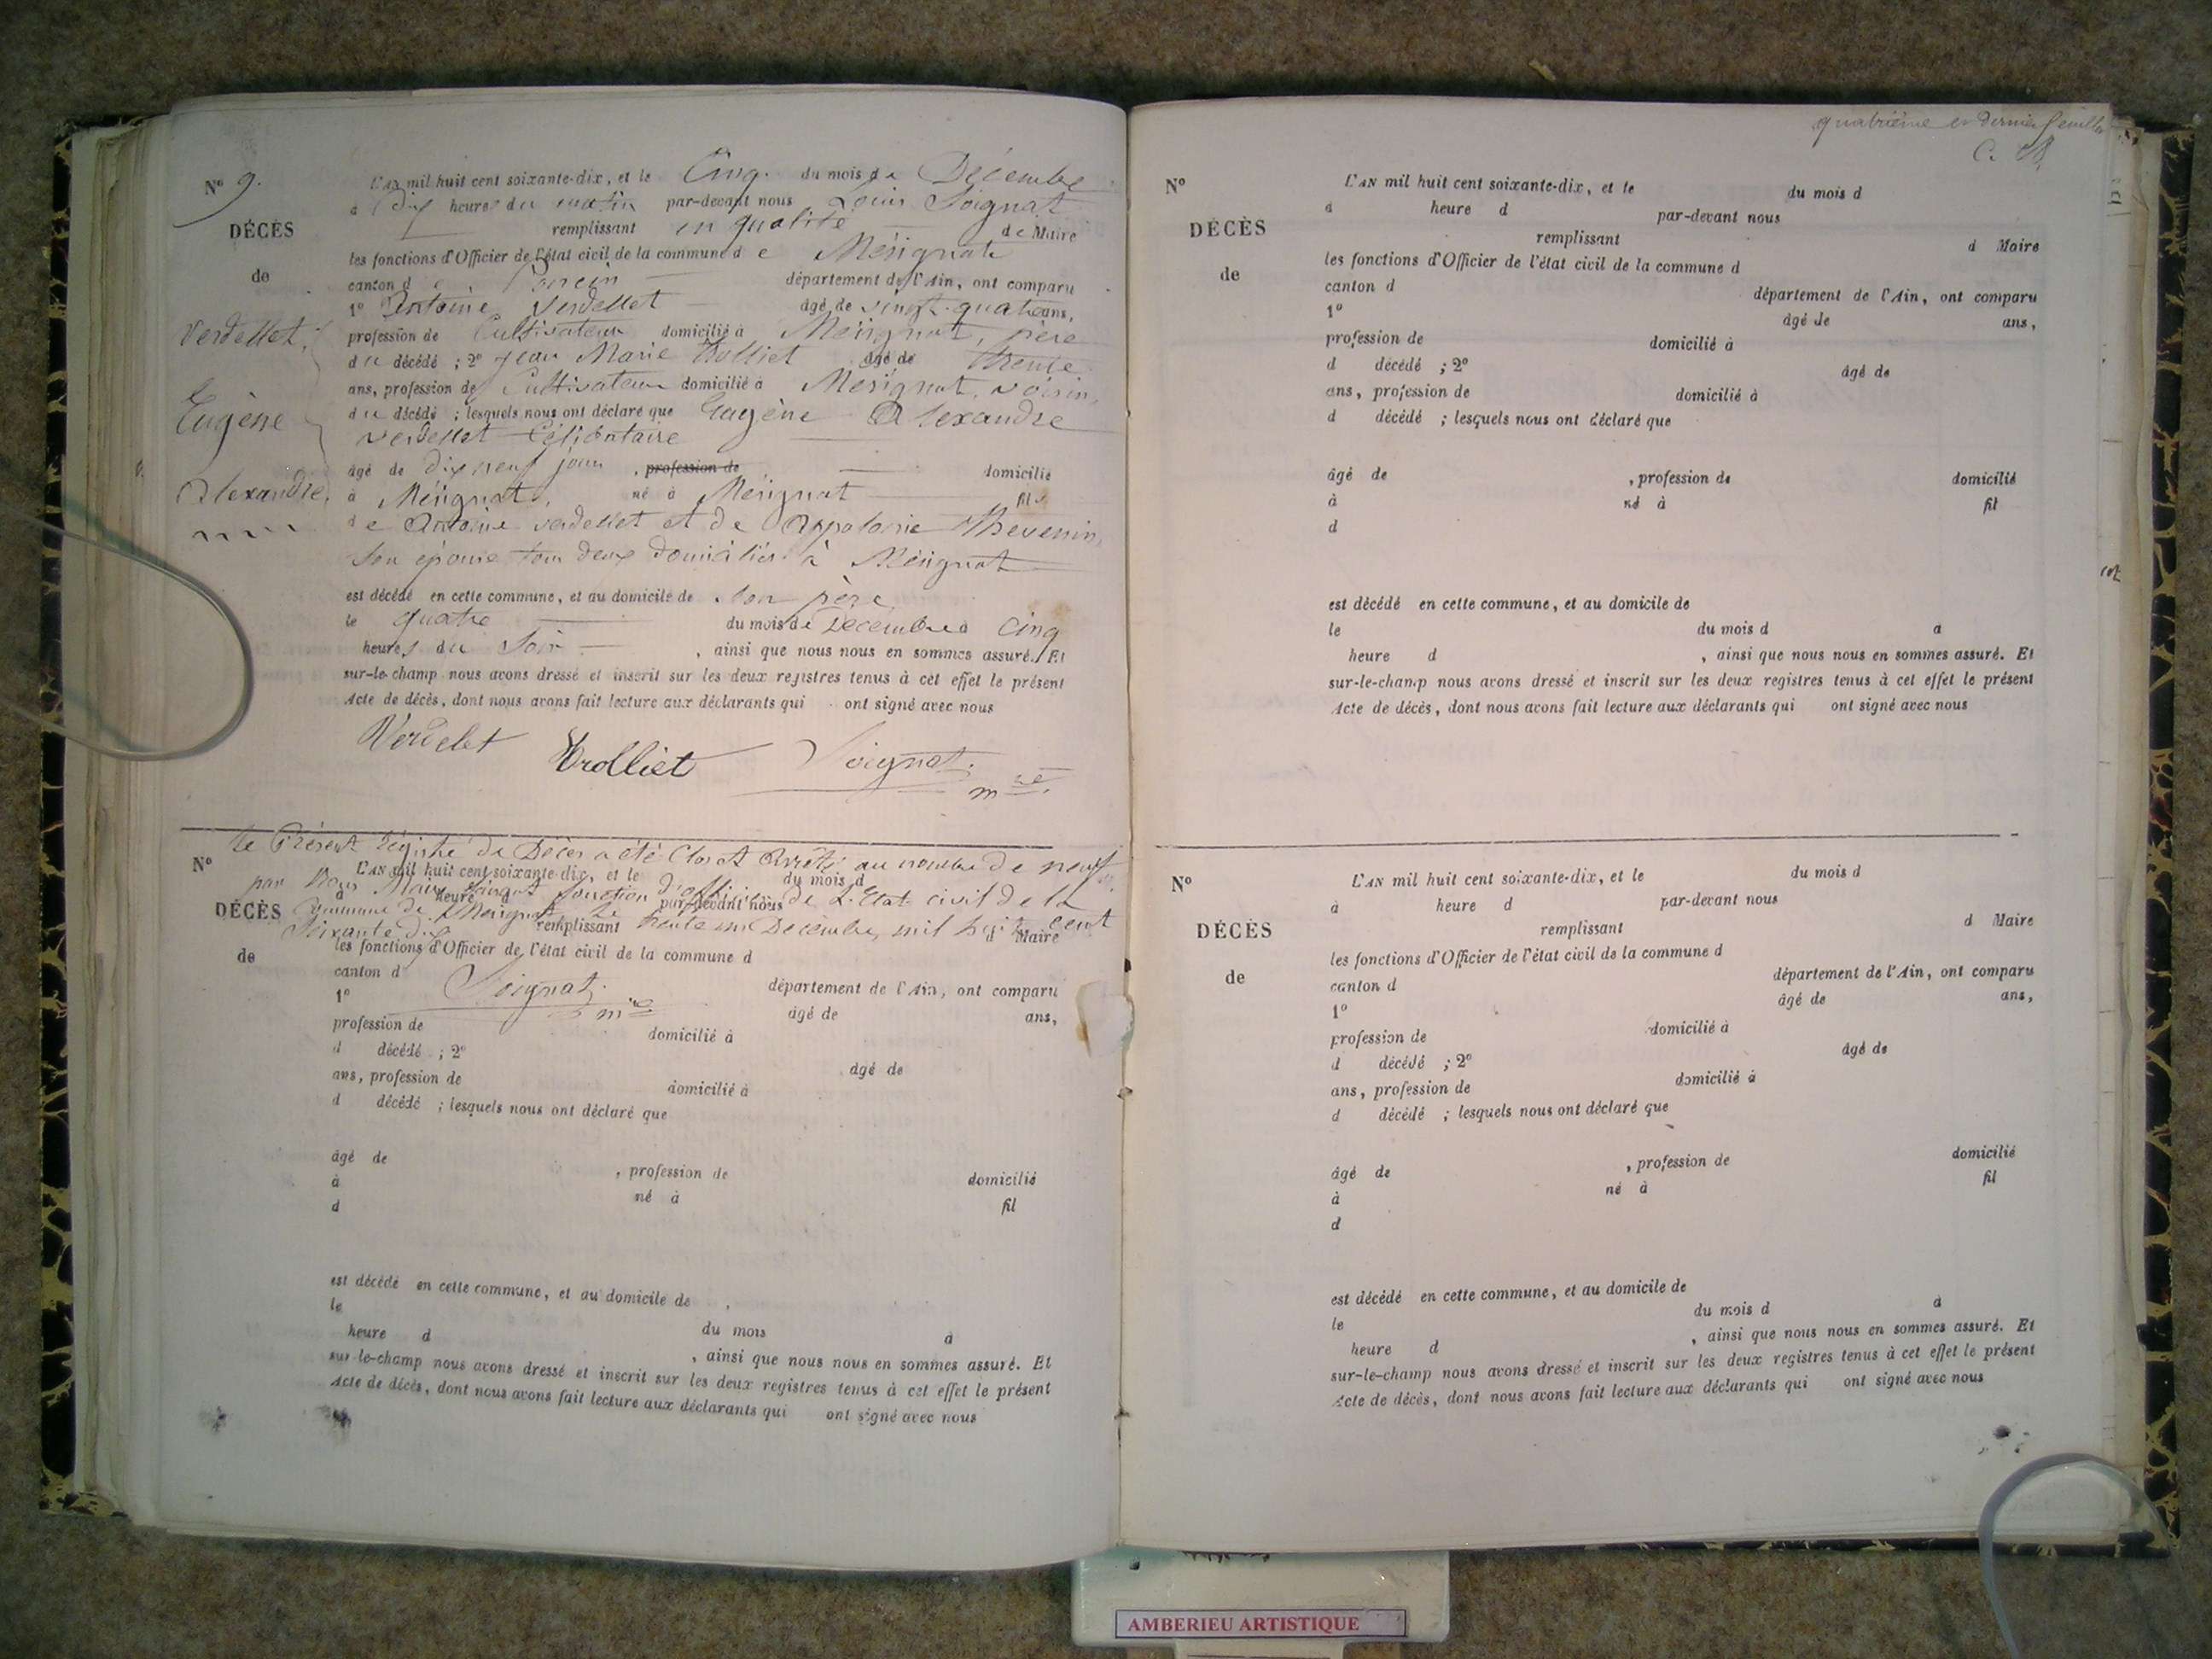 N° 9.
DÉCÈS
de
Verdellet
Eugène
Alexandre
L'AN mil huit cent soixante-dix, et le Cinq du mois de Décembre
à Dix heures du matin par-devant nous Louis Soignat
remplissant en qualité de Maire
les fonctions d'Officier de l'état civil de la commune de Mérignat
canton de Poncin département de l'Ain, ont comparu
1° Antoine Verdellet âgé de vingt-quatre ans,
profession de Cultivateur domicilié à Mérignat, père
du décédé ; 2° Jean Marie Trolliet âgé de Trente
ans, profession de Cultivateur domicilié à Mérignat, voisin,
du décédé ; lesquels nous ont déclaré que Eugène Alexandre
Verdellet Célibataire
âgé de dix neuf jours , profession de domicilié
à Mérignat, né à Mérignat fils
de Antoine Verdellet et de Appolonie Thevenin,
son épouse tous deux domiciliés à Mérignat
est décédé en cette commune, et au domicile de son père
le quatre du mois de Décembre à Cinq
heures du Soir , ainsi que nous nous en sommes assuré. Et
sur-le-champ nous avons dressé et inscrit sur les deux registres tenus à cet effet le présent
Acte de décès, dont nous avons fait lecture aux déclarants qui ont signé avec nous
Verdelet Trolliet Soignat
mre
Le Présent Régistre de Décès a été Clos et Arrêté au nombre de neuf
par Nous Maire faisant fonction d'officier de L'Etat civil de la
Commune de Mérignat Le trente un Décembre, mil huit cent
Soixante dix
Soignat
mre
N°
DÉCÈS
de
L'AN mil huit cent soixante-dix, et le du mois d
à heure d par-devant nous
remplissant d Maire
les fonctions d'Officier de l'état civil de la commune d
canton d département de l'Ain, ont comparu
1° âgé de ans,
profession de domicilié à
d décédé ; 2° âgé de
ans, profession de domicilié à
d décédé ; lesquels nous ont déclaré que
âgé de , profession de domicilié
à né à fil
d
est décédé en cette commune, et au domicile de
le du mois à
heure d , ainsi que nous nous en sommes assuré. Et
sur-le-champ nous avons dressé et inscrit sur les deux registres tenus à cet effet le présent
Acte de décès, dont nous avons fait lecture aux déclarants qui ont signé avec nous
quatrième et dernier feuillet
N°
DÉCÈS
de
L'AN mil huit cent soixante-dix, et le du mois d
à heure d par-devant nous
remplissant d Maire
les fonctions d'Officier de l'état civil de la commune d
canton d département de l'Ain, ont comparu
1° âgé de ans,
profession de domicilié à
d décédé ; 2° âgé de
ans, profession de domicilié à
d décédé ; lesquels nous ont déclaré que
âgé de , profession de domicilié
à né à fil
d
est décédé en cette commune, et au domicile de
le du mois d à
heure d , ainsi que nous nous en sommes assuré. Et
sur-le-champ nous avons dressé et inscrit sur les deux registres tenus à cet effet le présent
Acte de décès, dont nous avons fait lecture aux déclarants qui ont signé avec nous
N°
DÉCÈS
de
L'AN mil huit cent soixante-dix, et le du mois d
à heure d par-devant nous
remplissant d Maire
les fonctions d'Officier de l'état civil de la commune d
canton d département de l'Ain, ont comparu
1° âgé de ans,
profession de domicilié à
d décédé ; 2° âgé de
ans, profession de domicilié à
d décédé ; lesquels nous ont déclaré que
âgé de , profession de domicilié
à né à fil
d
est décédé en cette commune, et au domicile de
le du mois d à
heure d , ainsi que nous nous en sommes assuré. Et
sur-le-champ nous avons dressé et inscrit sur les deux registres tenus à cet effet le présent
Acte de décès, dont nous avons fait lecture aux déclarants qui ont signé avec nous
AMBERIEU ARTISTIQUE